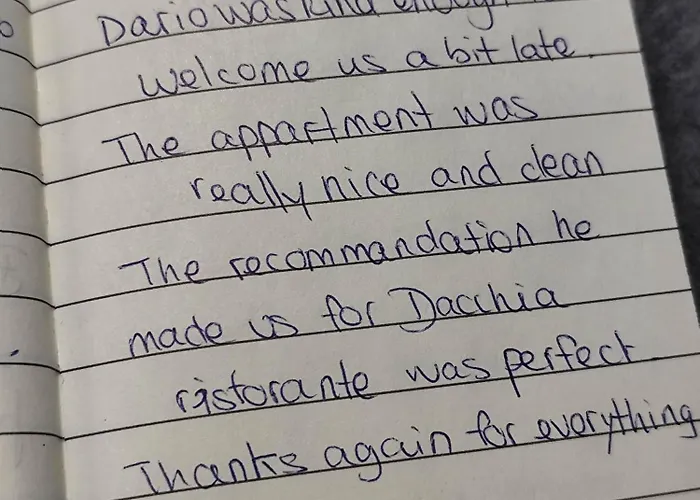 Dario was kind enough
welcome us a bit late.
The appartment was
really nice and clean
The recommandation he
made us for Dacchia
ristorante was perfect
Thanks again for everything